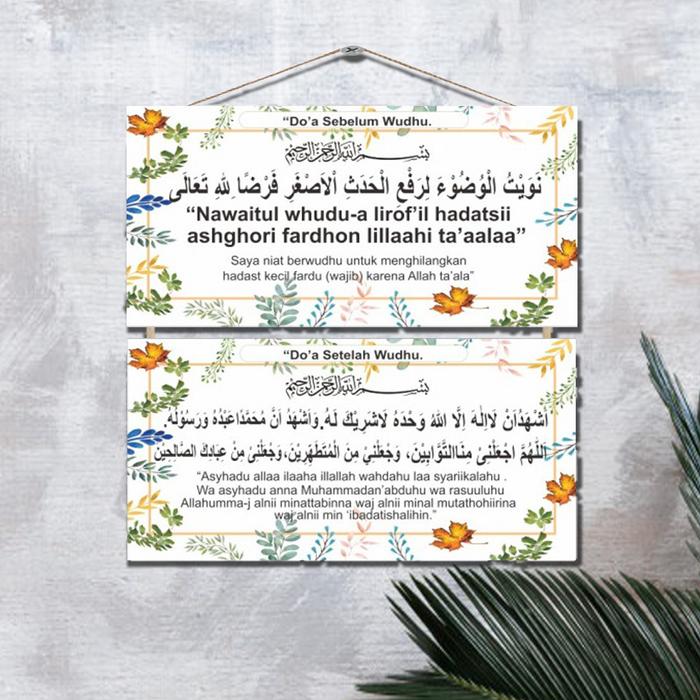 “Do’a Sebelum Wudhu.
بِسْــــمِ اللهِ الرَّحْمٰنِ الرَّحِيْمِ
نَوَيْتُ الْوُضُوْءَ لِرَفْعِ الْحَدَثِ اْلاَصْغَرِ فَرْضًا ِللهِ تَعَالَى
“Nawaitul whudu-a lirof’il hadatsii
ashghori fardhon lillaahi ta’aalaa”
Saya niat berwudhu untuk menghilangkan
hadast kecil fardu (wajib) karena Allah ta’ala”
“Do’a Setelah Wudhu.
بِسْــــمِ اللهِ الرَّحْمٰنِ الرَّحِيْمِ
اَشْهَدُاَنْ لَااِلٰهَ اِلَّا اللهُ وَحْدَهُ لَاشَرِيْكَ لَهُ وَاَشْهَدُ اَنَّ مُحَمَّدًاعَبْدُهُ وَرَسُوْلُهُ.
اَللّٰهُمَّ اجْعَلْنِىْ مِنَاالتَّوَّابِيْنَ، وَجْعَلْنِيْ مِنَ الْمُتَطَهِّرِيْنَ، وَجْعَلْنِىْ مِنْ عِبَادِكَ الصَّالِحِيْنَ
“Asyhadu allaa ilaaha illallah wahdahu laa syariikalahu .
Wa asyhadu anna Muhammadan’abduhu wa rasuuluhu
Allahumma-j alnii minattabinna waj alnii minal mutathohiirina
waj alnii min ‘ibadatishalihin.”